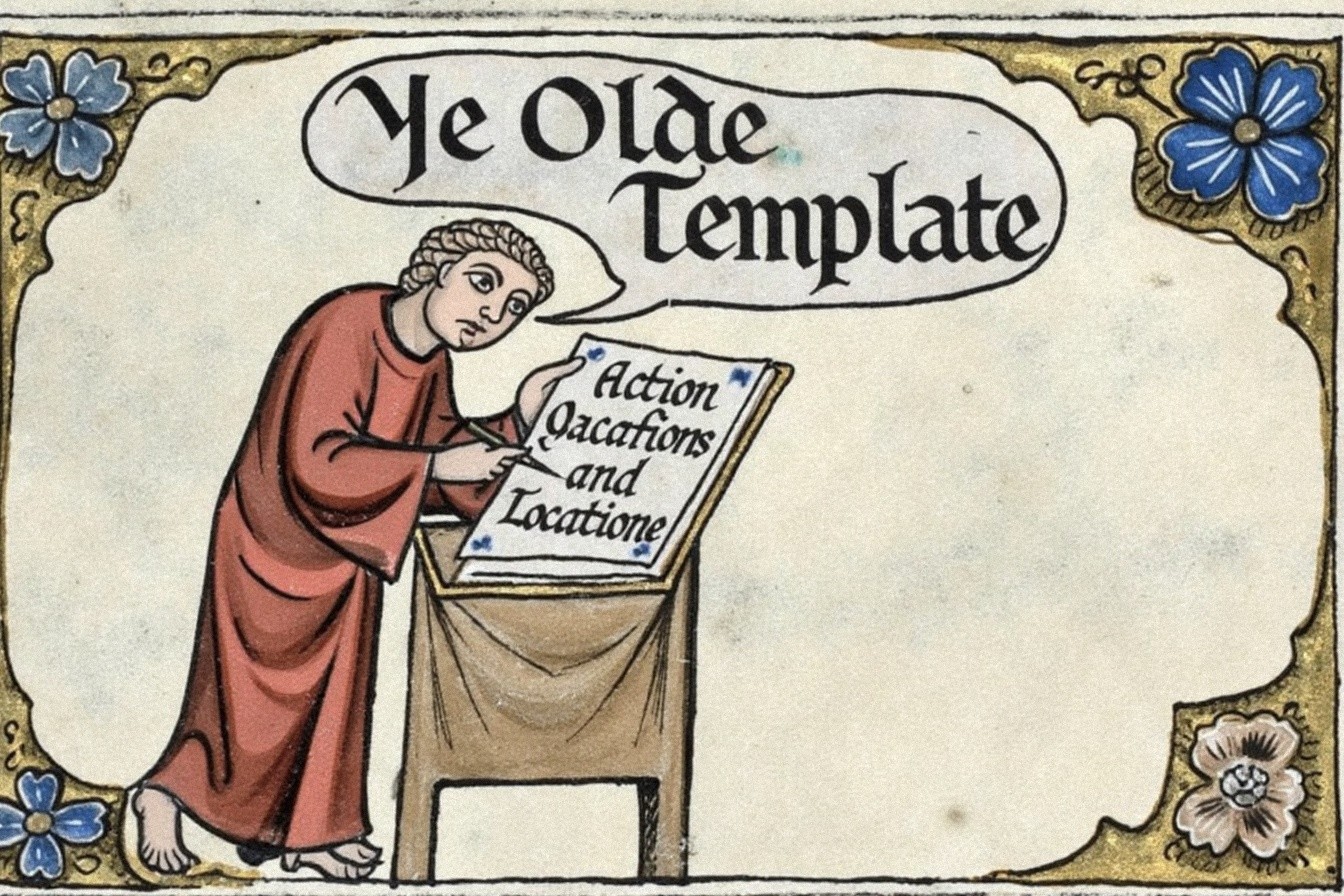 Ye Olde
Template
Action
Qacations
and
Locatione